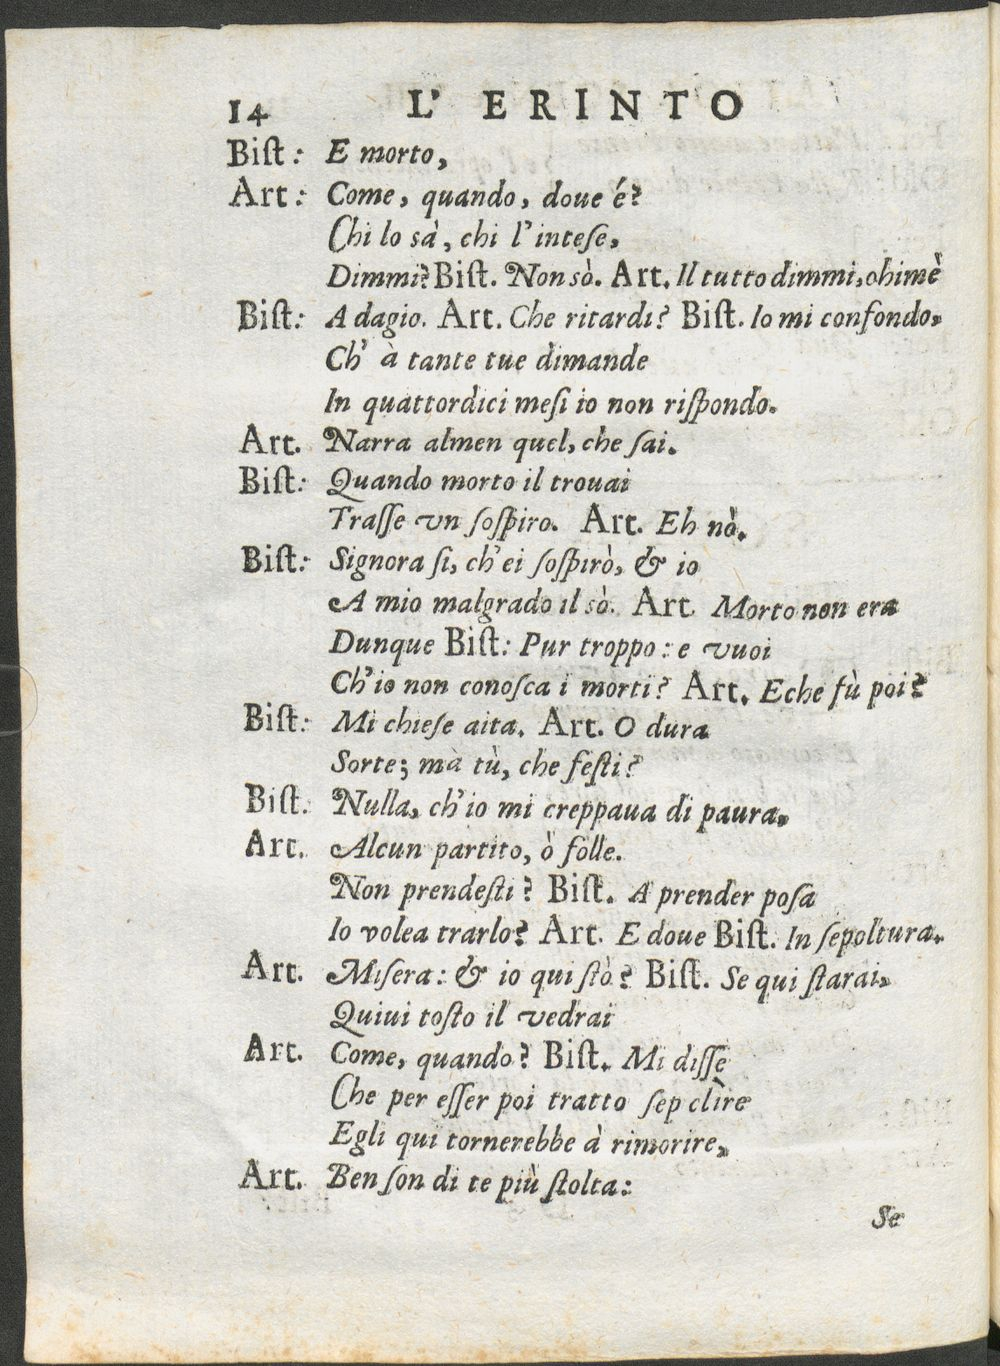 14 L' ERINTO
Biſt: E morto,
Art: Come, quando, doue é?
Chi lo sà, chi l'inteſe,
Dimmi? Biſt. Non sò. Art. Il tutto dimmi, ohimè
Biſt: Adagio. Art. Che ritardi? Biſt. Io mi confondo,
Ch' à tante tue dimande
In quattordici meſi io non riſpondo.
Art. Narra almen quel, che ſai.
Biſt: Quando morto il trouai
Traſſe vn ſoſpiro. Art. Eh nò.
Biſt: Signora ſi, ch'ei ſoſpirò, & io
A mio malgrado il sò. Art. Morto non era
Dunque Biſt: Pur troppo: e vuoi
Ch'io non conoſca i morti? Art. Eche fù poi?
Biſt: Mi chieſe aita. Art. O dura
Sorte; mà tù, che feſti?
Biſt. Nulla, ch'io mi creppaua di paura.
Art. Alcun partito, ò folle.
Non prendeſti? Biſt. A prender poſa
Io volea trarlo? Art. E doue Biſt. In ſepoltura.
Art. Miſera: & io qui ſtò? Biſt. Se qui ſtarai,
Quiui toſto il vedrai
Art. Come, quando? Biſt. Mi diſſe
Che per eſſer poi tratto ſep clìre
Egli qui tornerebbe à rimorire,
Art. Ben ſon di te più ſtolta:
Se